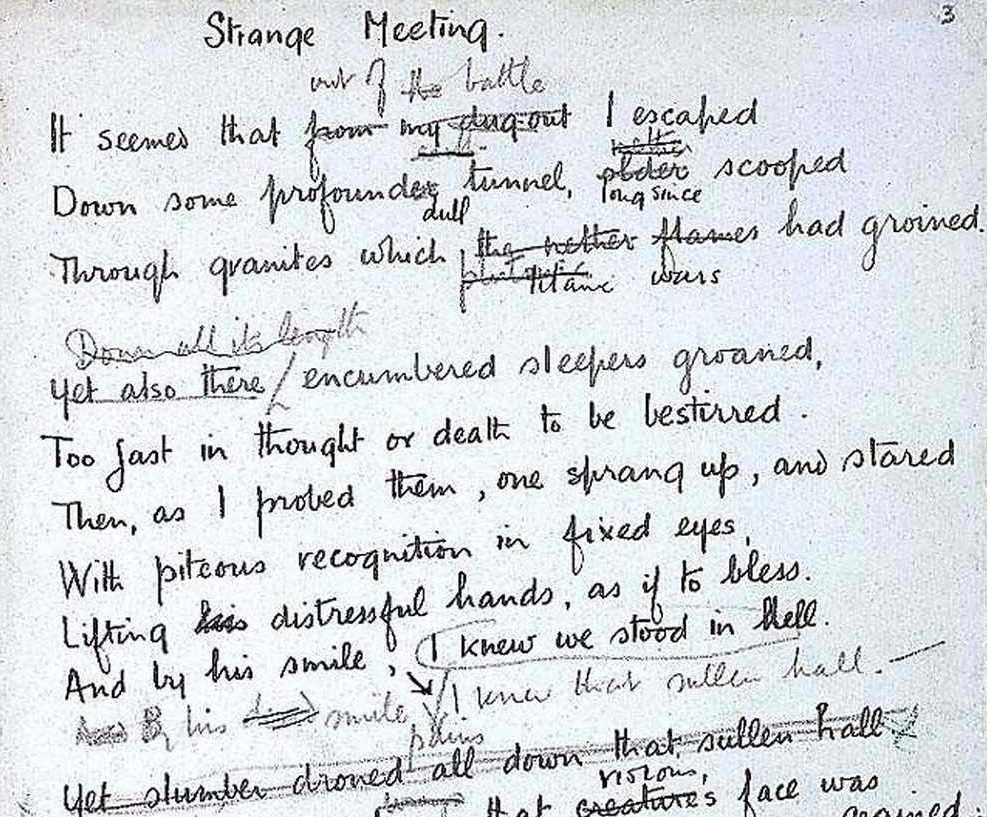 3
Strange Meeting.
out of the battle
It seemed that from my dug-out I escaped
Down some profounder tunnel, older scooped
dull long since
Through granites which the nether flames had groined.
Titanic wars
Down all its length
Yet also there encumbered sleepers groaned,
Too fast in thought or death to be bestirred.
Then, as I probed them, one sprang up, and stared
With piteous recognition in fixed eyes,
Lifting his distressful hands, as if to bless.
And by his smile, I knew we stood in Hell.
And By his smile, I knew that sullen hall.
Yet slumber droned all down that sullen hall
visions,
that creatures face was
grained.